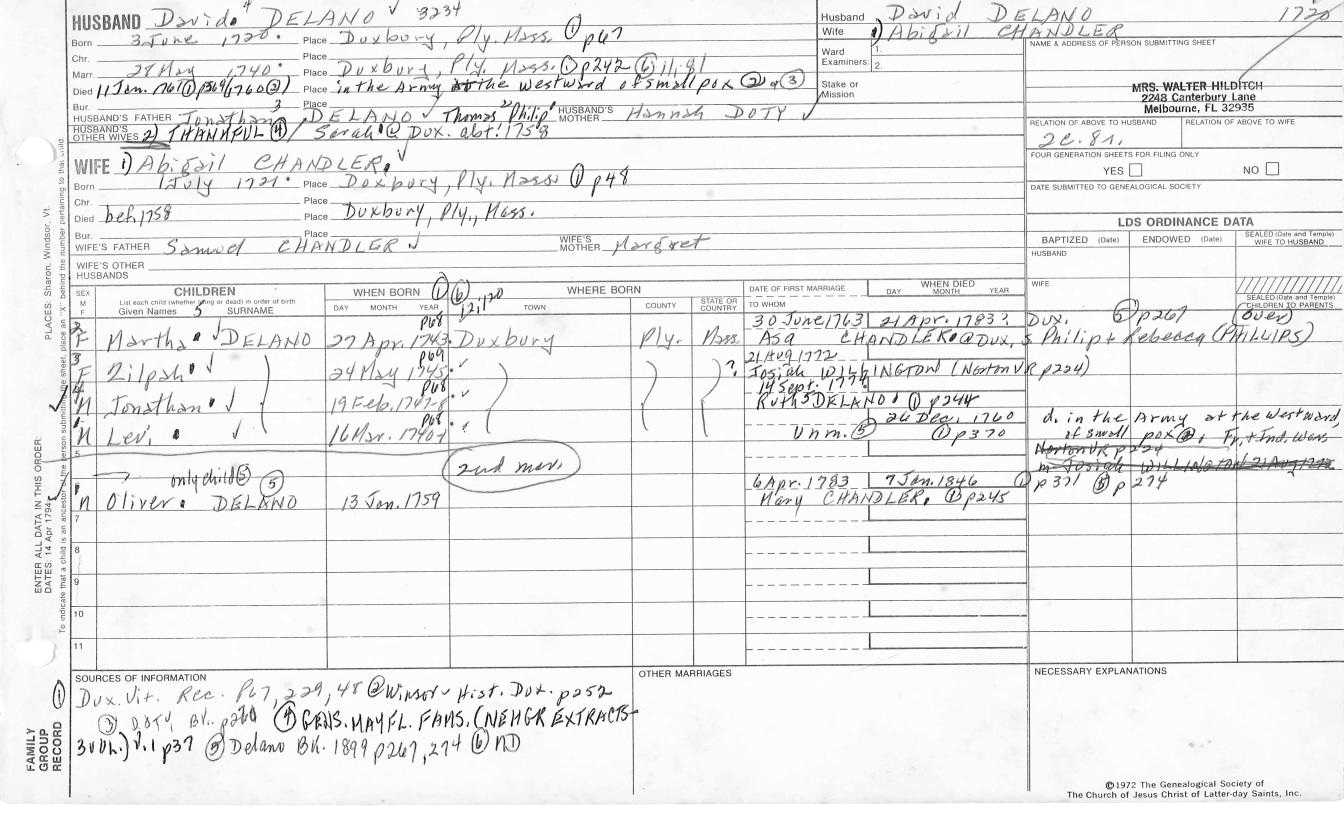 HUSBAND David⁴ DELANO ✓ 3234
Born 3 June 1720. Place Duxbury, Ply. Mass. ① p67
Chr. Place
Marr. 28 May 1740. Place Duxbury, Ply. Mass. ① p242 ⑥ 11,81
Died 11 Jan. 1761 ① p369 (1760 ②) Place in the Army at the Westward of small pox ② & ③
Bur. Place
HUSBAND'S FATHER Jonathan³ DELANO ✓ Thomas² Philip¹ HUSBAND'S MOTHER Hannah DOTY ✓
HUSBAND'S OTHER WIVES 2) THANKFUL ④ / Sarah @ Dux. abt. 1758
Husband David DELANO 1720
Wife 1) Abigail CHANDLER
Ward 1.
Examiners 2.
Stake or Mission
NAME & ADDRESS OF PERSON SUBMITTING SHEET
MRS. WALTER HILDITCH
2248 Canterbury Lane
Melbourne, FL 32935
RELATION OF ABOVE TO HUSBAND RELATION OF ABOVE TO WIFE
2c. 8r.
FOUR GENERATION SHEETS FOR FILING ONLY
YES NO
DATE SUBMITTED TO GENEALOGICAL SOCIETY
WIFE 1) Abigail CHANDLER. ✓
Born 1 July 1721. Place Duxbury, Ply. Mass. ① p48
Chr. Place
Died bef. 1758 Place Duxbury, Ply., Mass.
Bur. Place
WIFE'S FATHER Samuel CHANDLER ✓ WIFE'S MOTHER Margret
WIFE'S OTHER HUSBANDS
LDS ORDINANCE DATA
BAPTIZED (Date) ENDOWED (Date) SEALED (Date and Temple) WIFE TO HUSBAND
HUSBAND
WIFE
SEALED (Date and Temple) CHILDREN TO PARENTS
SEX M F
CHILDREN
List each child (whether living or dead) in order of birth
Given Names 5 SURNAME
WHEN BORN ① ⑥ 12;120
DAY MONTH YEAR
WHERE BORN
TOWN COUNTY STATE OR COUNTRY
DATE OF FIRST MARRIAGE
TO WHOM
WHEN DIED
DAY MONTH YEAR
2 F Martha. ✓ DELANO 27 Apr. 1743. p68 Duxbury Ply. Mass. 30 June 1763 21 Apr. 1783? Dux. ⑥ p267 (over)
Asa CHANDLER. @ Dux, s Philip + Rebecca (PHILLIPS)
3 F Zilpah. ✓ 24 May 1745. p69 ✓ ? 21 Aug 1772
Josiah WILLINGTON (Norton VR p224)
4 M Jonathan. ✓ 19 Feb. 1747-8 p68 ✓ 14 Sept. 1774
Ruth⁵ DELANO. ① p244
1 M Levi. ✓ 16 Mar. 1740-1 p68 26 Dec. 1760 d. in the Army at the Westward,
Unm. ⑤ ① p370 of small pox ②, Fr. + Ind. Wars
Norton VR p224
m Josiah WILLINGTON 21 Aug 1772
2nd marr.
→ only child ⑤ ⑤
1 M Oliver. DELANO 13 Jan. 1759 6 Apr. 1783 7 Jan. 1846 ① p371 ⑤ p274
Mary CHANDLER. ① p245
5
7
8
9
10
11
SOURCES OF INFORMATION
① Dux. Vit. Rec. P67, 229, 48 ② Winsor - Hist. Dux. p252
③ DOTY Bk. p260 ④ GENS. MAYFL. FAMS. (NEHGR EXTRACTS-
3 Vol.) V. 1 p37 ⑤ Delano Bk. 1899 p267, 274 ⑥ MD
OTHER MARRIAGES
NECESSARY EXPLANATIONS
FAMILY GROUP RECORD
ENTER ALL DATA IN THIS ORDER
DATES: 14 Apr 1794
PLACES: Sharon, Windsor, Vt.
To indicate that a child is an ancestor of the person submitting the sheet, place an "X" behind the number pertaining to that child.
©1972 The Genealogical Society of
The Church of Jesus Christ of Latter-day Saints, Inc.